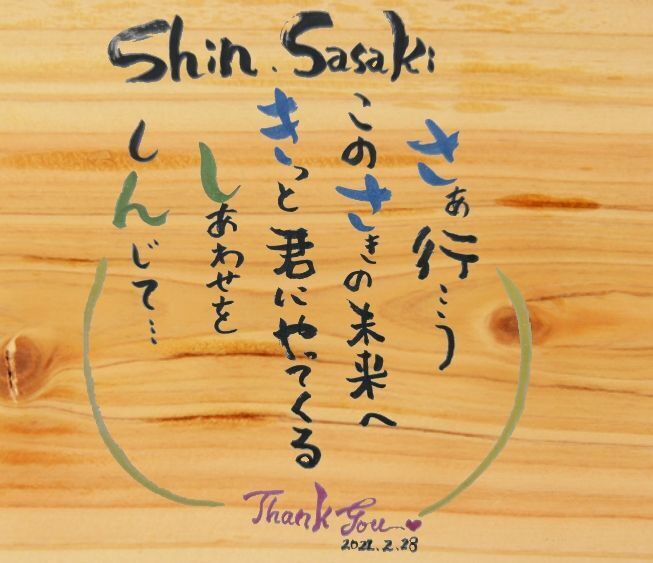 Shin. Sasaki
さぁ行…う
このさきの未来へ
きっと君にやってくる
しあわせを
しんじて…
Thank You♥
2022.2.28